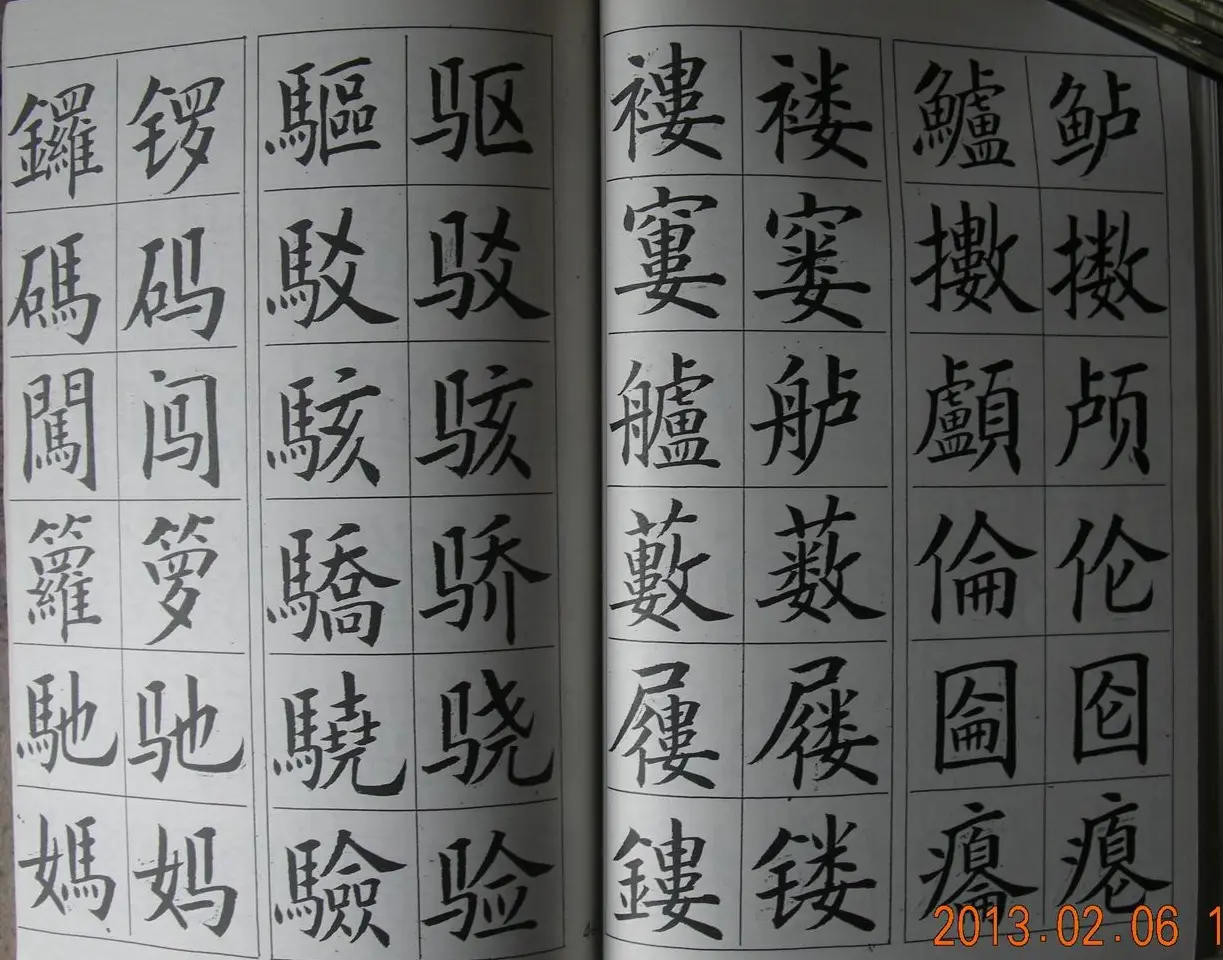 鑼 锣 驅 驱 褸 褛 鱸 鲈
碼 码 駁 驳 窶 窭 擻 擞
闖 闯 駭 骇 艫 舻 顱 颅
籮 箩 驕 骄 藪 薮 倫 伦
馳 驰 驍 骁 屨 屦 圇 囵
媽 妈 驗 验 鏤 镂 癟 瘪
2013.02.06 1